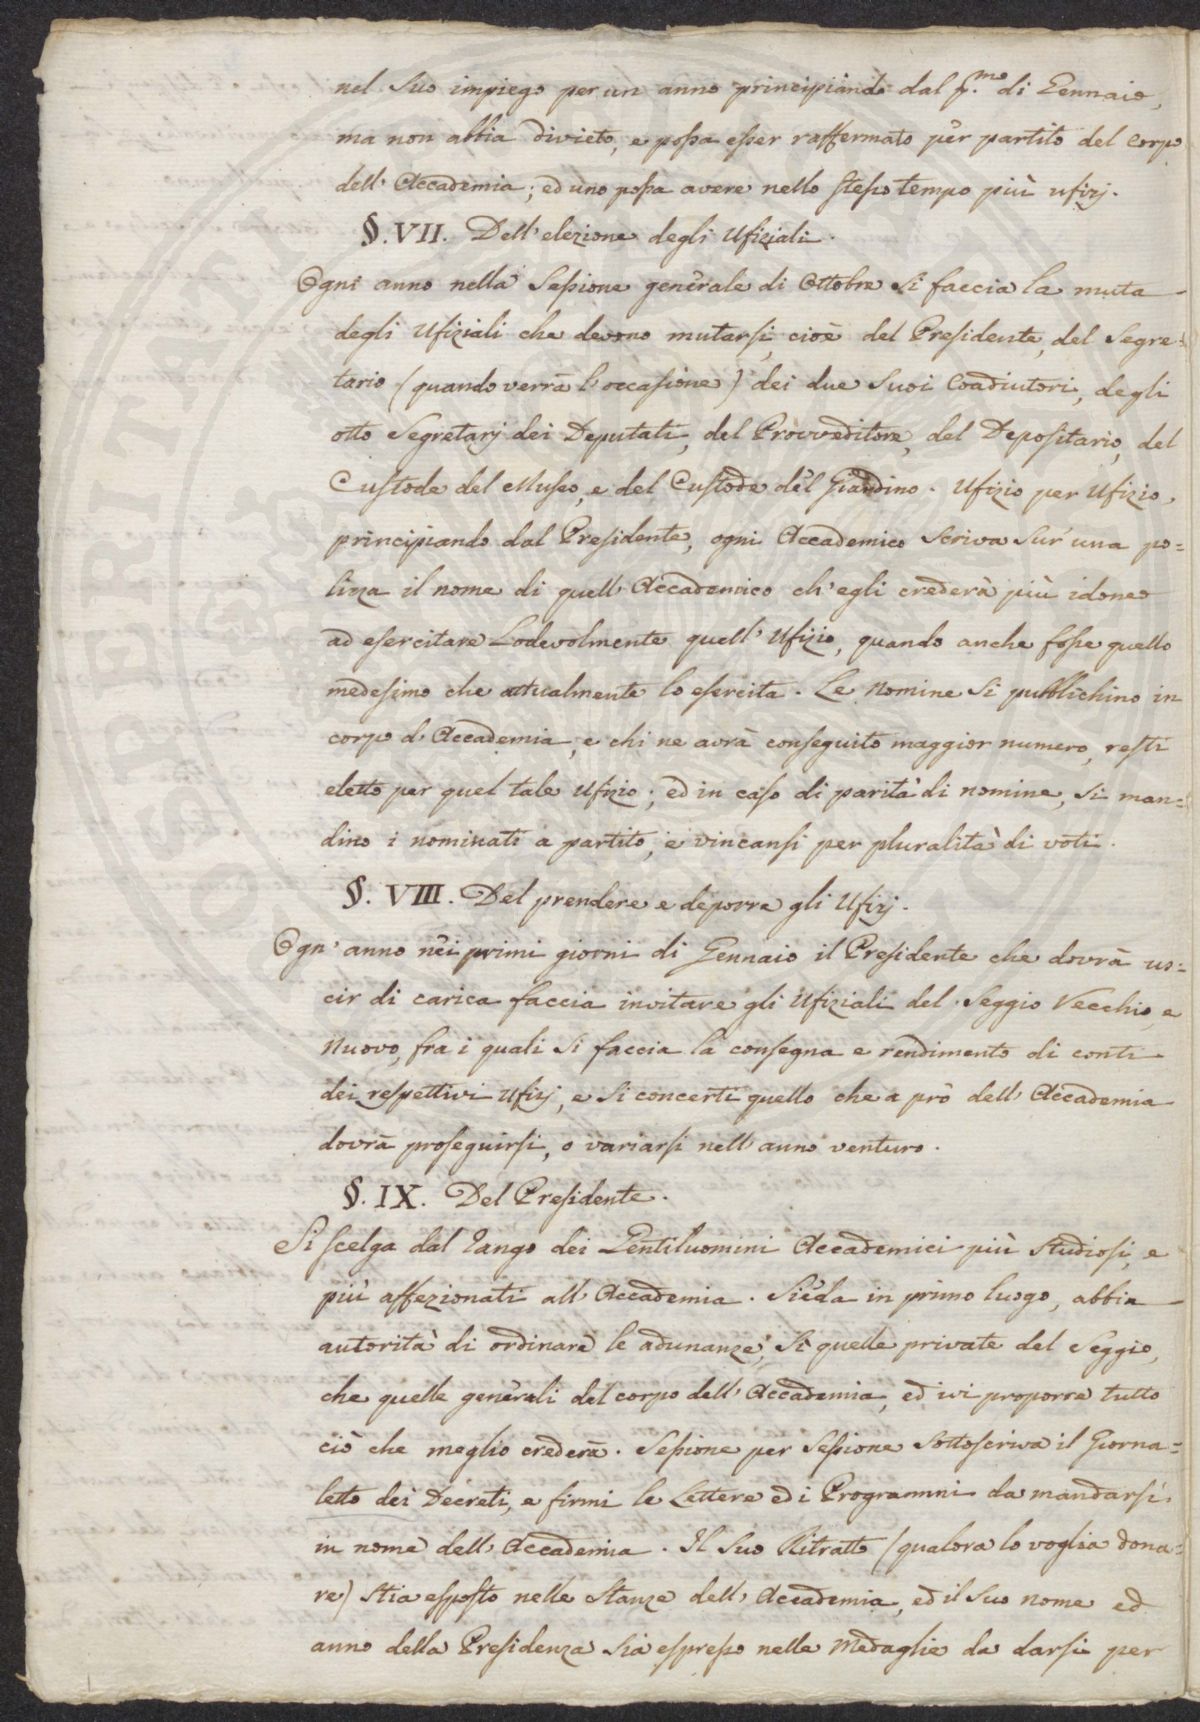 nel suo impiego per un anno principiando dal p.mo di Gennaio,
ma non abbia divieto, e possa esser raffermato per partito del Corpo
dell' Accademia; ed uno possa avere nello stesso tempo più ufizj.
§. VII. Dell' elezione degli Ufiziali.
Ogni anno nella Sessione generale di Ottobre si faccia la muta
degli Ufiziali che devono mutarsi, cioè del Presidente, del Segre=
tario (quando verrà l'occasione) dei due suoi Coadiutori, degli
otto Segretarj dei Deputati, del Provveditore, del Depositario, del
Custode del Museo, e del Custode del Giardino. Ufizio per Ufizio,
principiando dal Presidente, ogni Accademico scriva sur' una po=
lizza il nome di quell' Accademico ch'egli crederà più idoneo
ad esercitare Lodevolmente quell' Ufizio, quando anche fosse quello
medesimo che attualmente lo esercita. Le Nomine si pubblichino in
corpo d'Accademia, e chi ne avrà conseguito maggior numero, resti
eletto per quel tale Ufizio; ed in caso di parità di nomine, si man=
dino i nominati a partito, e vincansi per pluralità di voti.
§. VIII. Del prendere e deporre gli Ufizj.
Ogn' anno nei primi giorni di Gennaio il Presidente che dovrà us=
cir di carica faccia invitare gli Ufiziali del Seggio Vecchio, e
Nuovo, fra i quali si faccia la consegna e rendimento di conti
dei respettivi Ufizj, e si concerti quello che a prò dell' Accademia
dovrà proseguirsi, o variarsi nell' anno venturo.
§. IX. Del Presidente.
Si scelga dal Rango dei Gentiluomini Accademici più studiosi, e
più affezionati all' Accademia. Sieda in primo luogo, abbia
autorità di ordinare le adunanze, si quelle private del Seggio,
che quelle generali del corpo dell' Accademia, ed ivi proporre tutto
ciò che meglio crederà. Sessione per Sessione sottoscriva il Giorna=
letto dei Decreti, e firmi le Lettere ed i Programmi da mandarsi
in nome dell' Accademia. Il suo Ritratto (qualora lo voglia dona=
re) stia esposto nelle Stanze dell' Accademia, ed il suo nome ed
anno della Presidenza sia espresso nelle Medaglie da darsi per